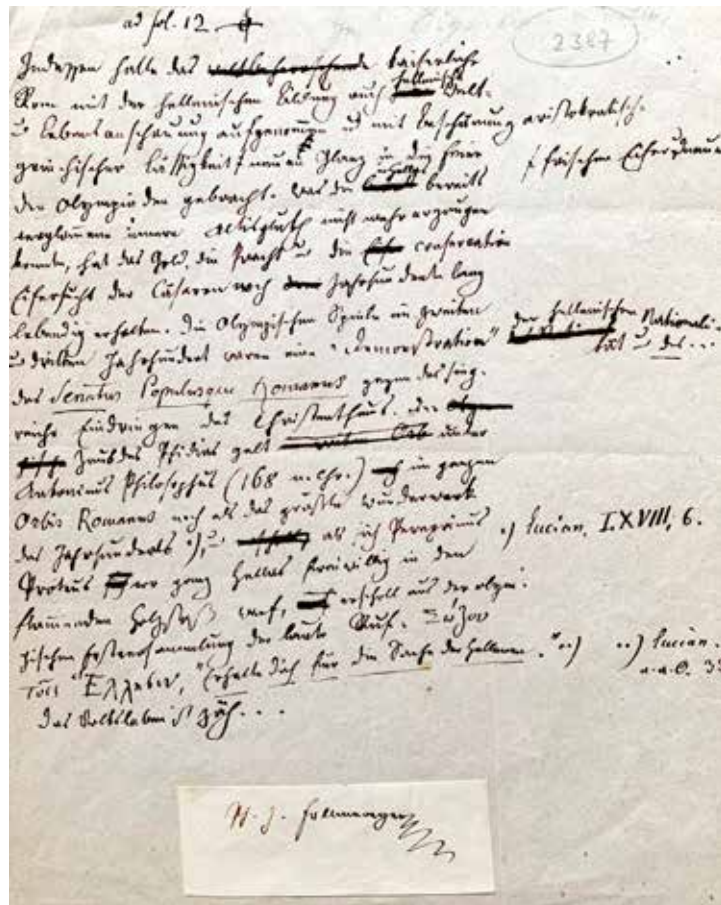 ad fol. 12
2387
Indessen hatte das weltbeherrschende kaiserliche
Rom mit der hellenischen Bildung auch hellenische Welt-
u Lebensanschauung aufgenommen und mit Beschämung aristokratisch-
griechischer Lässigkeit neuen Glanz in die Feier
frischen Eifer u neuen
der Olympiaden gebracht. Was die Hellas bereits
verglommene innere nicht mehr erzeugen
konnte, hat das Geld, die Pracht u die conservative
Eifersucht der Cäsaren noch Jahrhunderte lang
lebendig erhalten. Die Olympischen Spiele im zweiten
u dritten Jahrhundert waren eine "Demonstration" der hellenischen Nationali-
tät u des...
des Senatus Populusque Romanus gegen das sieg-
reiche Eindringen des Christenthums. Der
Zeus des Phidias galt unter
Antoninus Philosophus (168 n. Chr.) im ganzen
Orbis Romanus noch als das größte Wunderwerk
des Jahrhunderts •), u als sich Peregrinus
•) Lucian, LXVIII, 6.
Proteus vor ganz Hellas freiwillig in den
flammenden Holzstoß warf, erscholl aus der olym-
pischen Festversammlung der laute Ruf. Σώζου
τοῖς Ἕλλησιν, "Erhalte dich für die Sache der Hellenen." ••)
••) Lucian.
a. a. O. 33
Das Volksleben ist zäh...
Fallmerayer